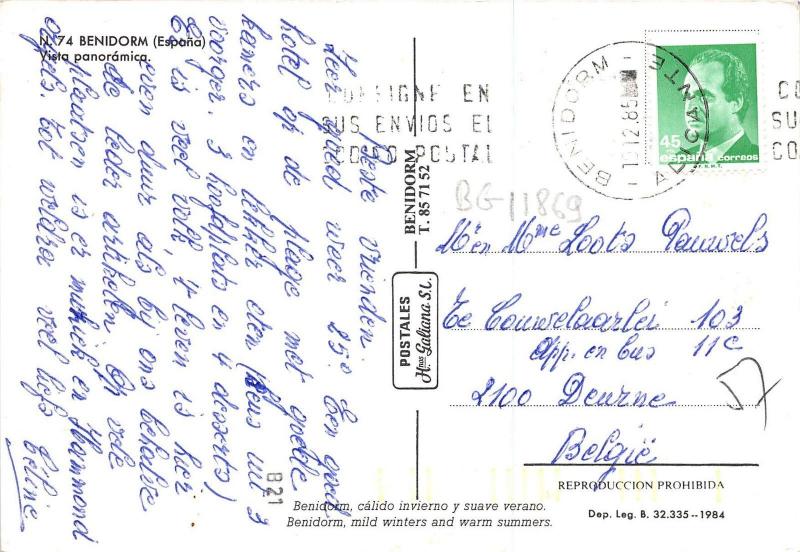 N. 74 BENIDORM (España)
Vista panorámica.
Beste Vrienden.
Zeer goed weer 25° Een groot
hotel op de plage met goede
kamers en lekker eten (keus uit 3
voorger. 3 hoofdplats en 4 deserts)
Er is veel volk, 't leven is hier
even duur als bij ons behalve
de leder artikelen Op vele
plaatsen is er muziek en Hammond
orgels. tot weldra veel liefs
Celine
BENIDORM
T. 85 71 52
POSTALES
H.nos Galiana S.L.
B 21
CONSIGNE EN
SUS ENVIOS EL
CODIGO POSTAL
BENIDORM
12.85
ALICANTE
45
españa correos
F.N.M.T.
CO
SU
CO
BG-11869
Mr en Mme Loots Pauwels
Te Couwelaarlei 103
App. en bus 11c
2100 Deurne
België
REPRODUCCION PROHIBIDA
Dep. Leg. B. 32.335--1984
Benidorm, cálido invierno y suave verano.
Benidorm, mild winters and warm summers.